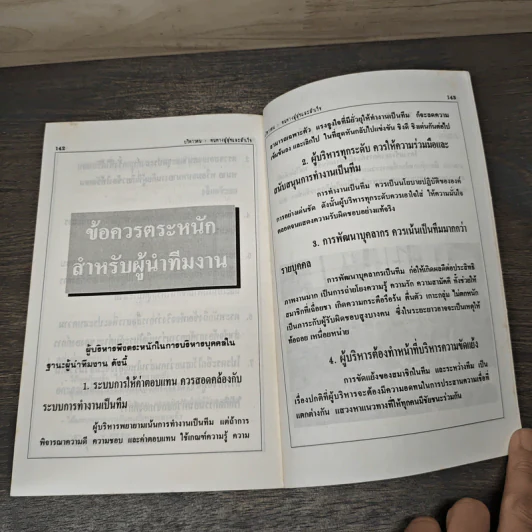 142
บริหารคน : หนทางสู่ชนะใจ
ข้อควรตระหนัก
สำหรับผู้นำทีมงาน
ผู้บริหารพึงตระหนักในการบริหารบุคคลใน
ฐานะผู้นำทีมงาน ดังนี้
1. ระบบการให้ค่าตอบแทน ควรสอดคล้องกับ
ระบบการทำงานเป็นทีม
ผู้บริหารพยายามเน้นการทำงานเป็นทีม แต่ถ้าการ
พิจารณาความดี ความชอบ และค่าตอบแทน ใช้เกณฑ์ความรู้ ความ
143
สามารถเฉพาะตัว แรงจูงใจที่มียั่วยุให้ทำงานเป็นทีม ก็จะลดความ
เข้มข้นลง และเลิกไป ในที่สุดหันกลับไปแข่งขัน ชิงดี ชิงเด่นกันต่อไป
2. ผู้บริหารทุกระดับ ควรให้ความร่วมมือและ
สนับสนุนการทำงานเป็นทีม
การทำงานเป็นทีม ควรเป็นนโยบายปฏิบัติขององค์
การอย่างเด่นชัด ดังนั้นผู้บริหารทุกระดับควรเอาใจใส่ ให้ความมั่นใจ
ตลอดจนแสดงความรับผิดชอบอย่างแท้จริง
3. การพัฒนาบุคลากร ควรเน้นเป็นทีมมากกว่า
รายบุคคล
การพัฒนาบุคลากรเป็นทีม ก่อให้เกิดผลดีต่อประสิทธิ
ภาพงานมาก เป็นการถ่ายโยงความรู้ ความรัก ความสามัคคี ทั้งช่วยให้
สมาชิกที่เฉื่อยชา เกิดความกระตือรือร้น ตื่นตัว เกาะกลุ่ม ไม่ตกหนัก
เป็นภาระกับผู้รับผิดชอบสูงบางคน ซึ่งในระยะยาวอาจจะเป็นเหตุให้
ท้อถอย เหนื่อยหน่าย
4. ผู้บริหารต้องทำหน้าที่บริหารความขัดแย้ง
การขัดแย้งของสมาชิกในทีม และระหว่างทีม เป็น
เรื่องปกติที่ผู้บริหารจะต้องมีความอดทนในการประสานความเชื่อที่
แตกต่างกัน แสวงหาแนวทางที่ให้ทุกคนมีชัยชนะร่วมกัน